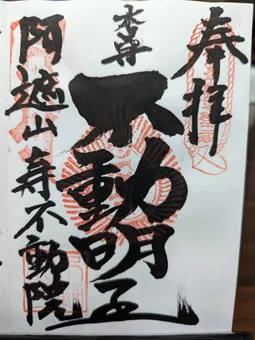 奉拝
本尊
不動明王
阿遮山寿不動院